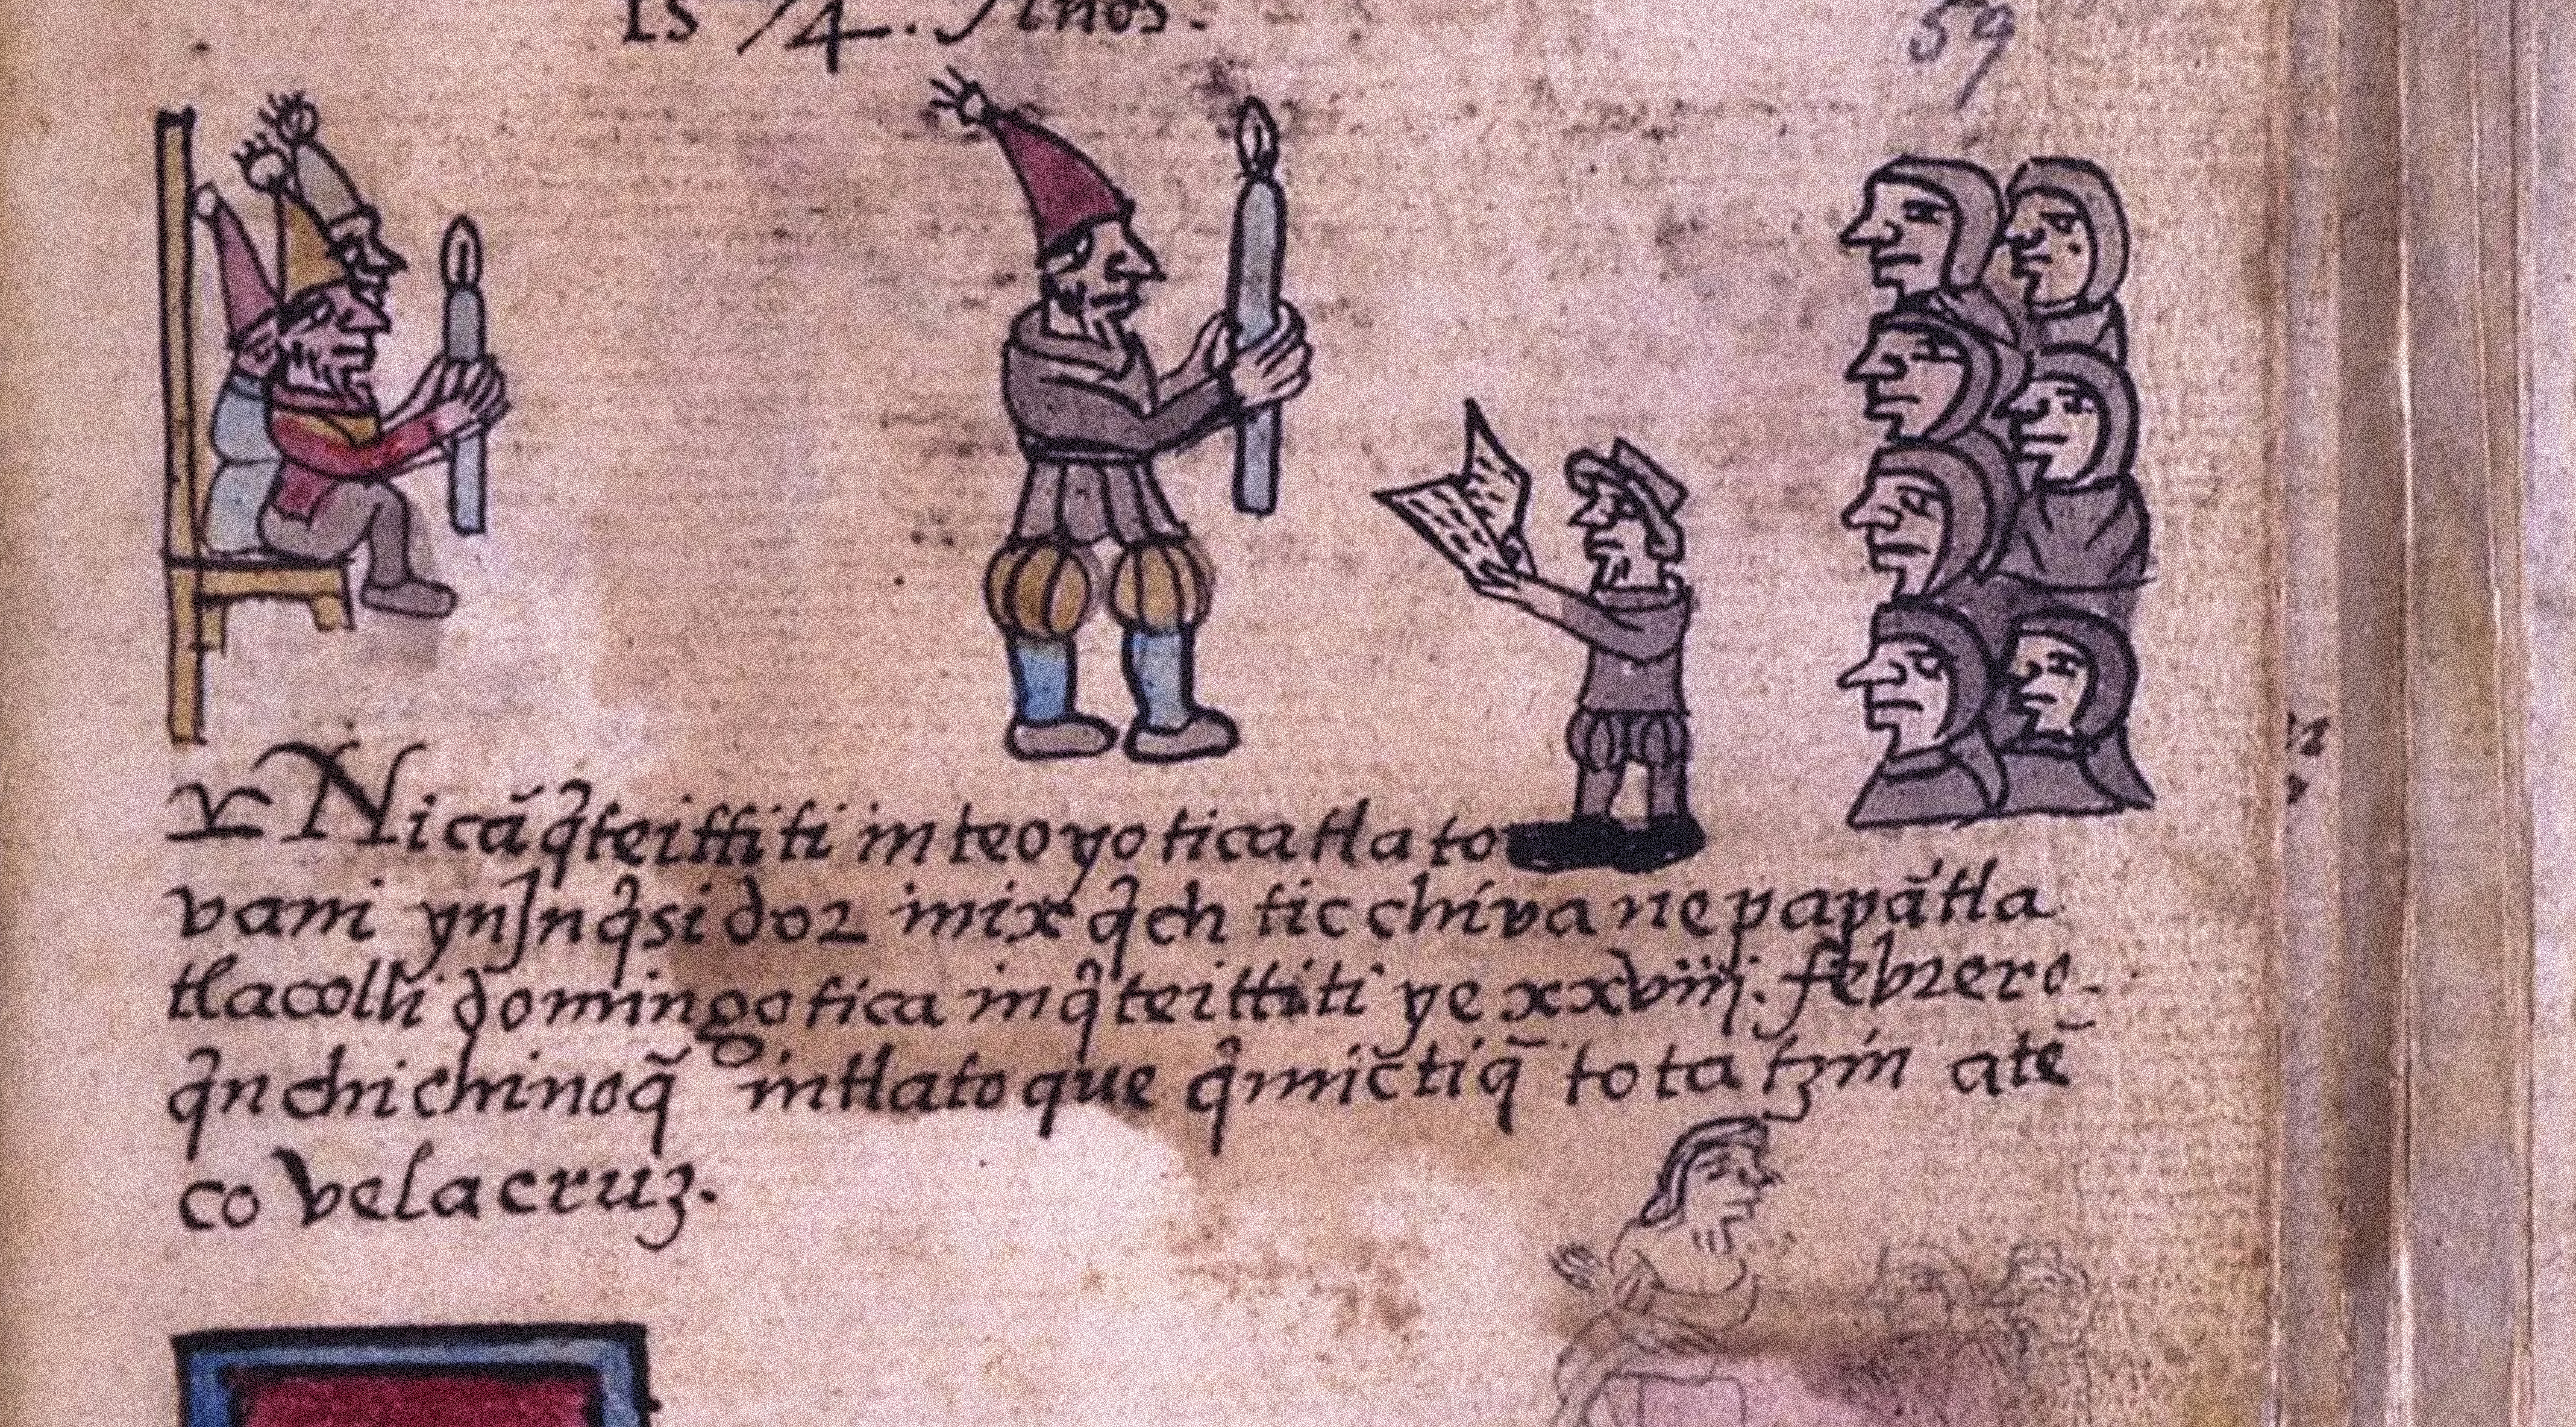 1574. Años.
59
Nicā q̄teittiti in teoyotica tlato
vani yn Jnq̄sidor in ixq̄ch ticchiva nepapā tla
tlacolli domingotica in q̄teittiti ye xxviij. febrero.
q̄nchichinoq̄ in tlatoque q̄mictiq̄ totatzin atē
co velacruz.